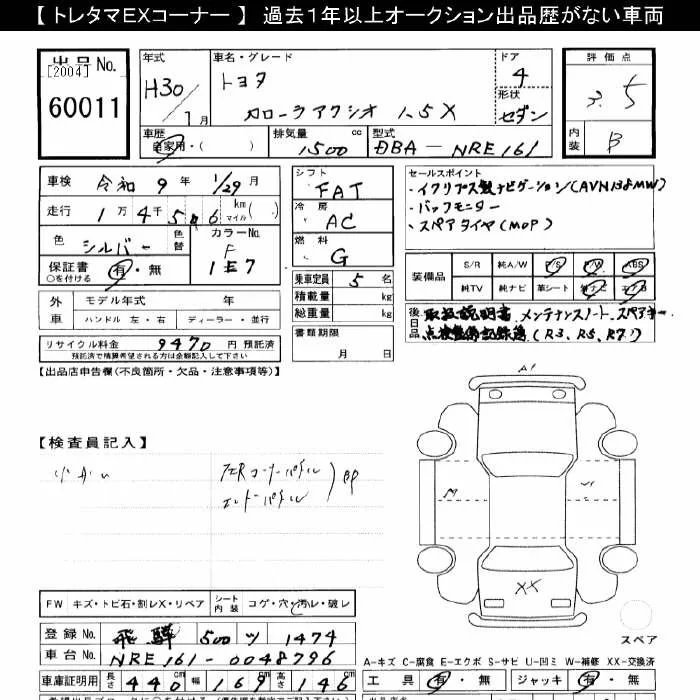 【 トレタマEXコーナー 】 過去1年以上オークション出品歴がない車両
出品 No. [2004]
60011
年式
H30/1月
車名・グレード
トヨタ
カローラアクシオ 1.5X
ドア
4
形状
セダン
評価点
3.5
内装
B
車歴
自家用・( )
排気量 cc
1500
型式
DBA-NRE161
車検 令和9年1/29月
走行 1万4千5百6 km マイル( )
色 シルバー 色替
カラーNo. F 1E7
保証書 ○を付ける 有・無
外車 モデル年式 年
ハンドル 左・右 ディーラー・並行
リサイクル料金 9470 円 預託済
預託済で精算希望される方は金額記入して下さい
シフト FAT
冷房 AC
燃料 G
乗車定員 5 名
積載量 kg
総重量 kg
書類期限
月 日
セールスポイント
・イクリプス製ナビゲーション(AVN138MW)
・バックモニター
・スペアタイヤ(MOP)
装備品 S/R 純A/W P/S P/W ABS
純TV 純ナビ 革シート 社ナビ エアB
後日品 取扱説明書 メンテナンスノート スペアキー
点検整備記録簿 (R3、R5、R7)
【出品店申告欄(不良箇所・欠品・注意事項等)】
【検査員記入】
RRコーナーパネル
エンドパネル
A1
XX
スペア
FW キズ・トビ石・割レX・リペア シート内装 コゲ・穴・汚レ・破レ
登録 No. 飛騨 500 ツ 1474
車台 No. NRE161-0048796
車庫証明用 長さ 440 cm 幅 169 cm 高さ 146 cm
A-キズ C-腐食 E-エクボ S-サビ U-凹ミ W-補修 XX-交換済
工具 有・無 ジャッキ 有・無